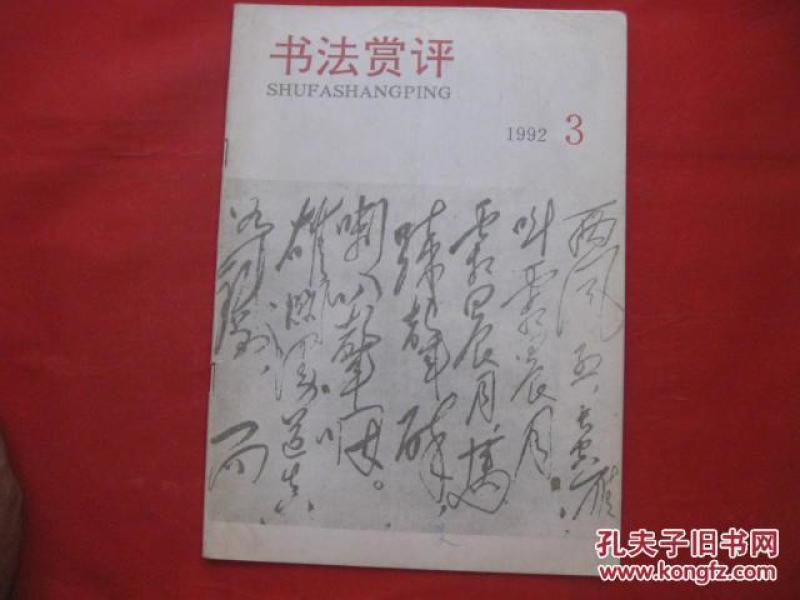 书法赏评
SHUFASHANGPING
1992 3
西风烈,长空雁
叫霜晨月。
霜晨月,馬
蹄聲碎,
喇叭聲咽。
雄关漫道真
而
孔夫子旧书网
www.kongfz.com